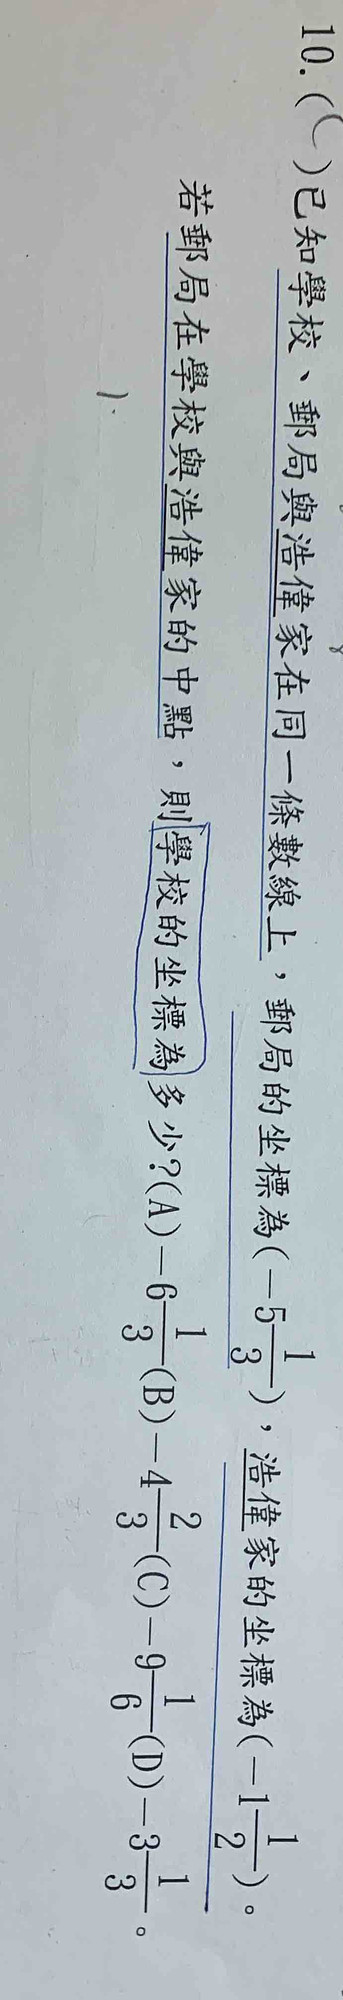 10.(C)已知學校、郵局與浩偉家在同一條數線上，郵局的坐標為(-5 1/3)，浩偉家的坐標為(-1 1/2)。
若郵局在學校與浩偉家的中點，則學校的坐標為多少?(A)-6 1/3(B)-4 2/3(C)-9 1/6(D)-3 1/3。